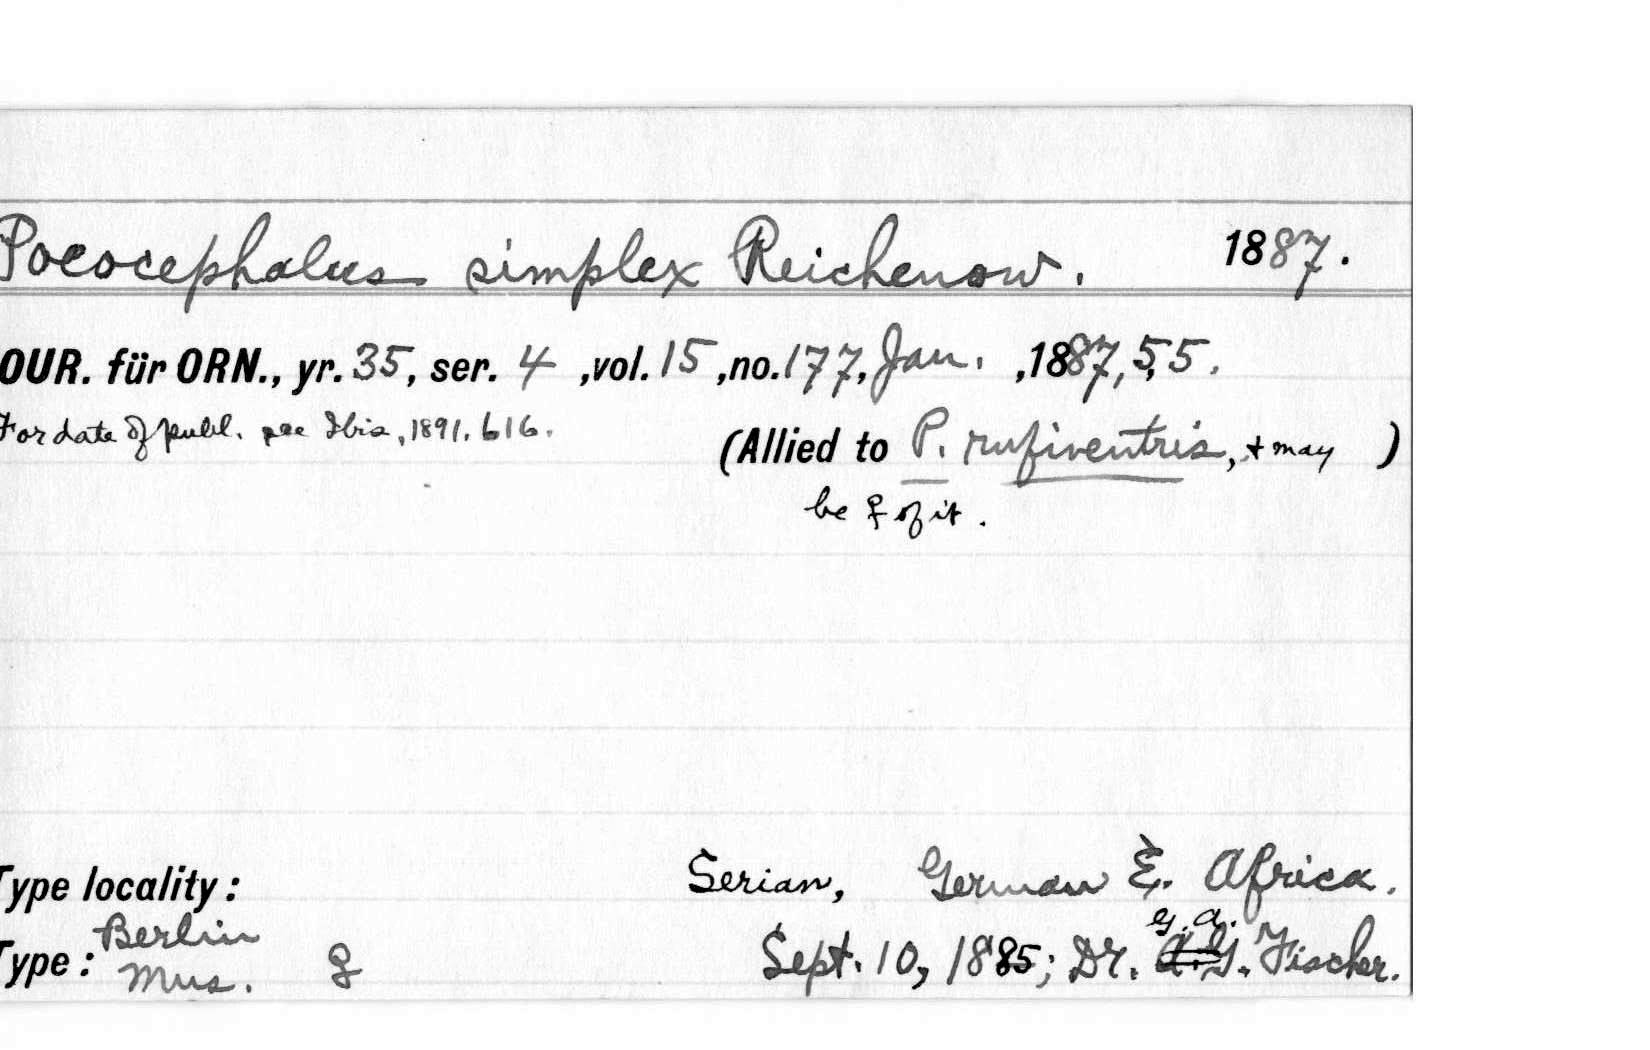 Poeocephalus simplex Reichenow. 1887.
OUR. für ORN., yr. 35, ser. 4 ,vol. 15 ,no. 177, Jan. ,1887, 55.
For date of publ. see Ibis, 1891, 616.
(Allied to P. rufiventris, + may )
be ♀ of it.
Type locality: Serian, German E. Africa.
Berlin G. A.
Type: Mus. Sept. 10, 1885; Dr. A. G. Fischer.